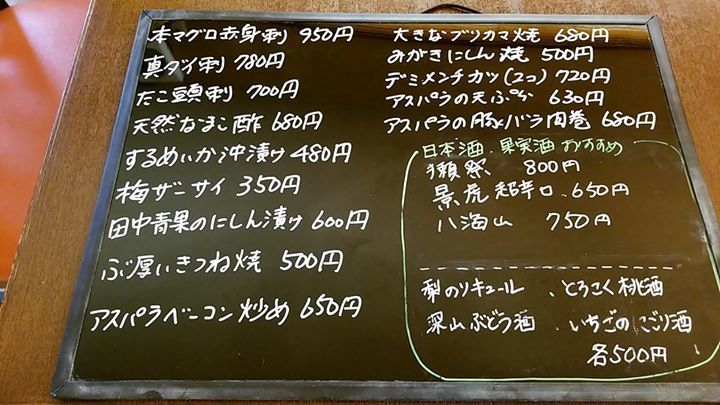 本マグロ赤身刺 950円
真ダイ刺 780円
たこ頭刺 700円
天然なまこ酢 680円
するめいか沖漬け 480円
梅ザーサイ 350円
田中青果のにしん漬け 600円
ぶ厚いきつね焼 500円
アスパラベーコン炒め 650円
大きなブリカマ焼 680円
みがきにしん焼 500円
デミメンチカツ(2コ) 720円
アスパラの天ぷら 630円
アスパラの豚バラ肉巻 680円
日本酒・果実酒おすすめ
獺祭 800円
景虎超辛口 650円
八海山 750円
梨のリキュール 、とろこく桃酒
深山ぶどう酒 、いちごのにごり酒
各500円